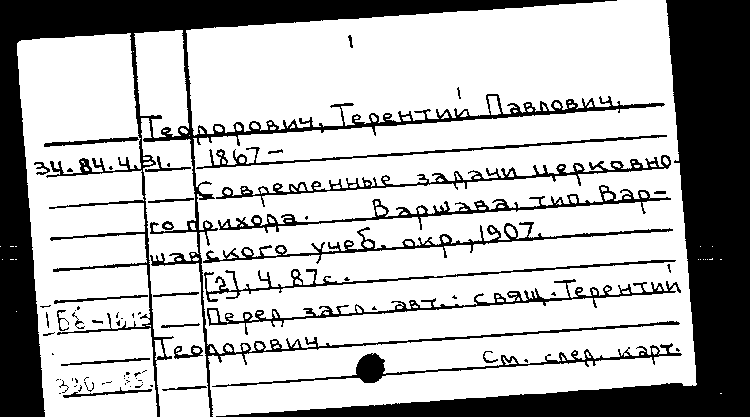 1
Теодорович, Терентий Павлович,
34.84.4.31. 1867–
Современные задачи церковно-
го прихода. Варшава, тип. Вар-
шавского учеб. окр., 1907.
[2], 4, 87с.
Перед загл. авт.: свящ. Терентий
Теодорович.
См. след. карт.